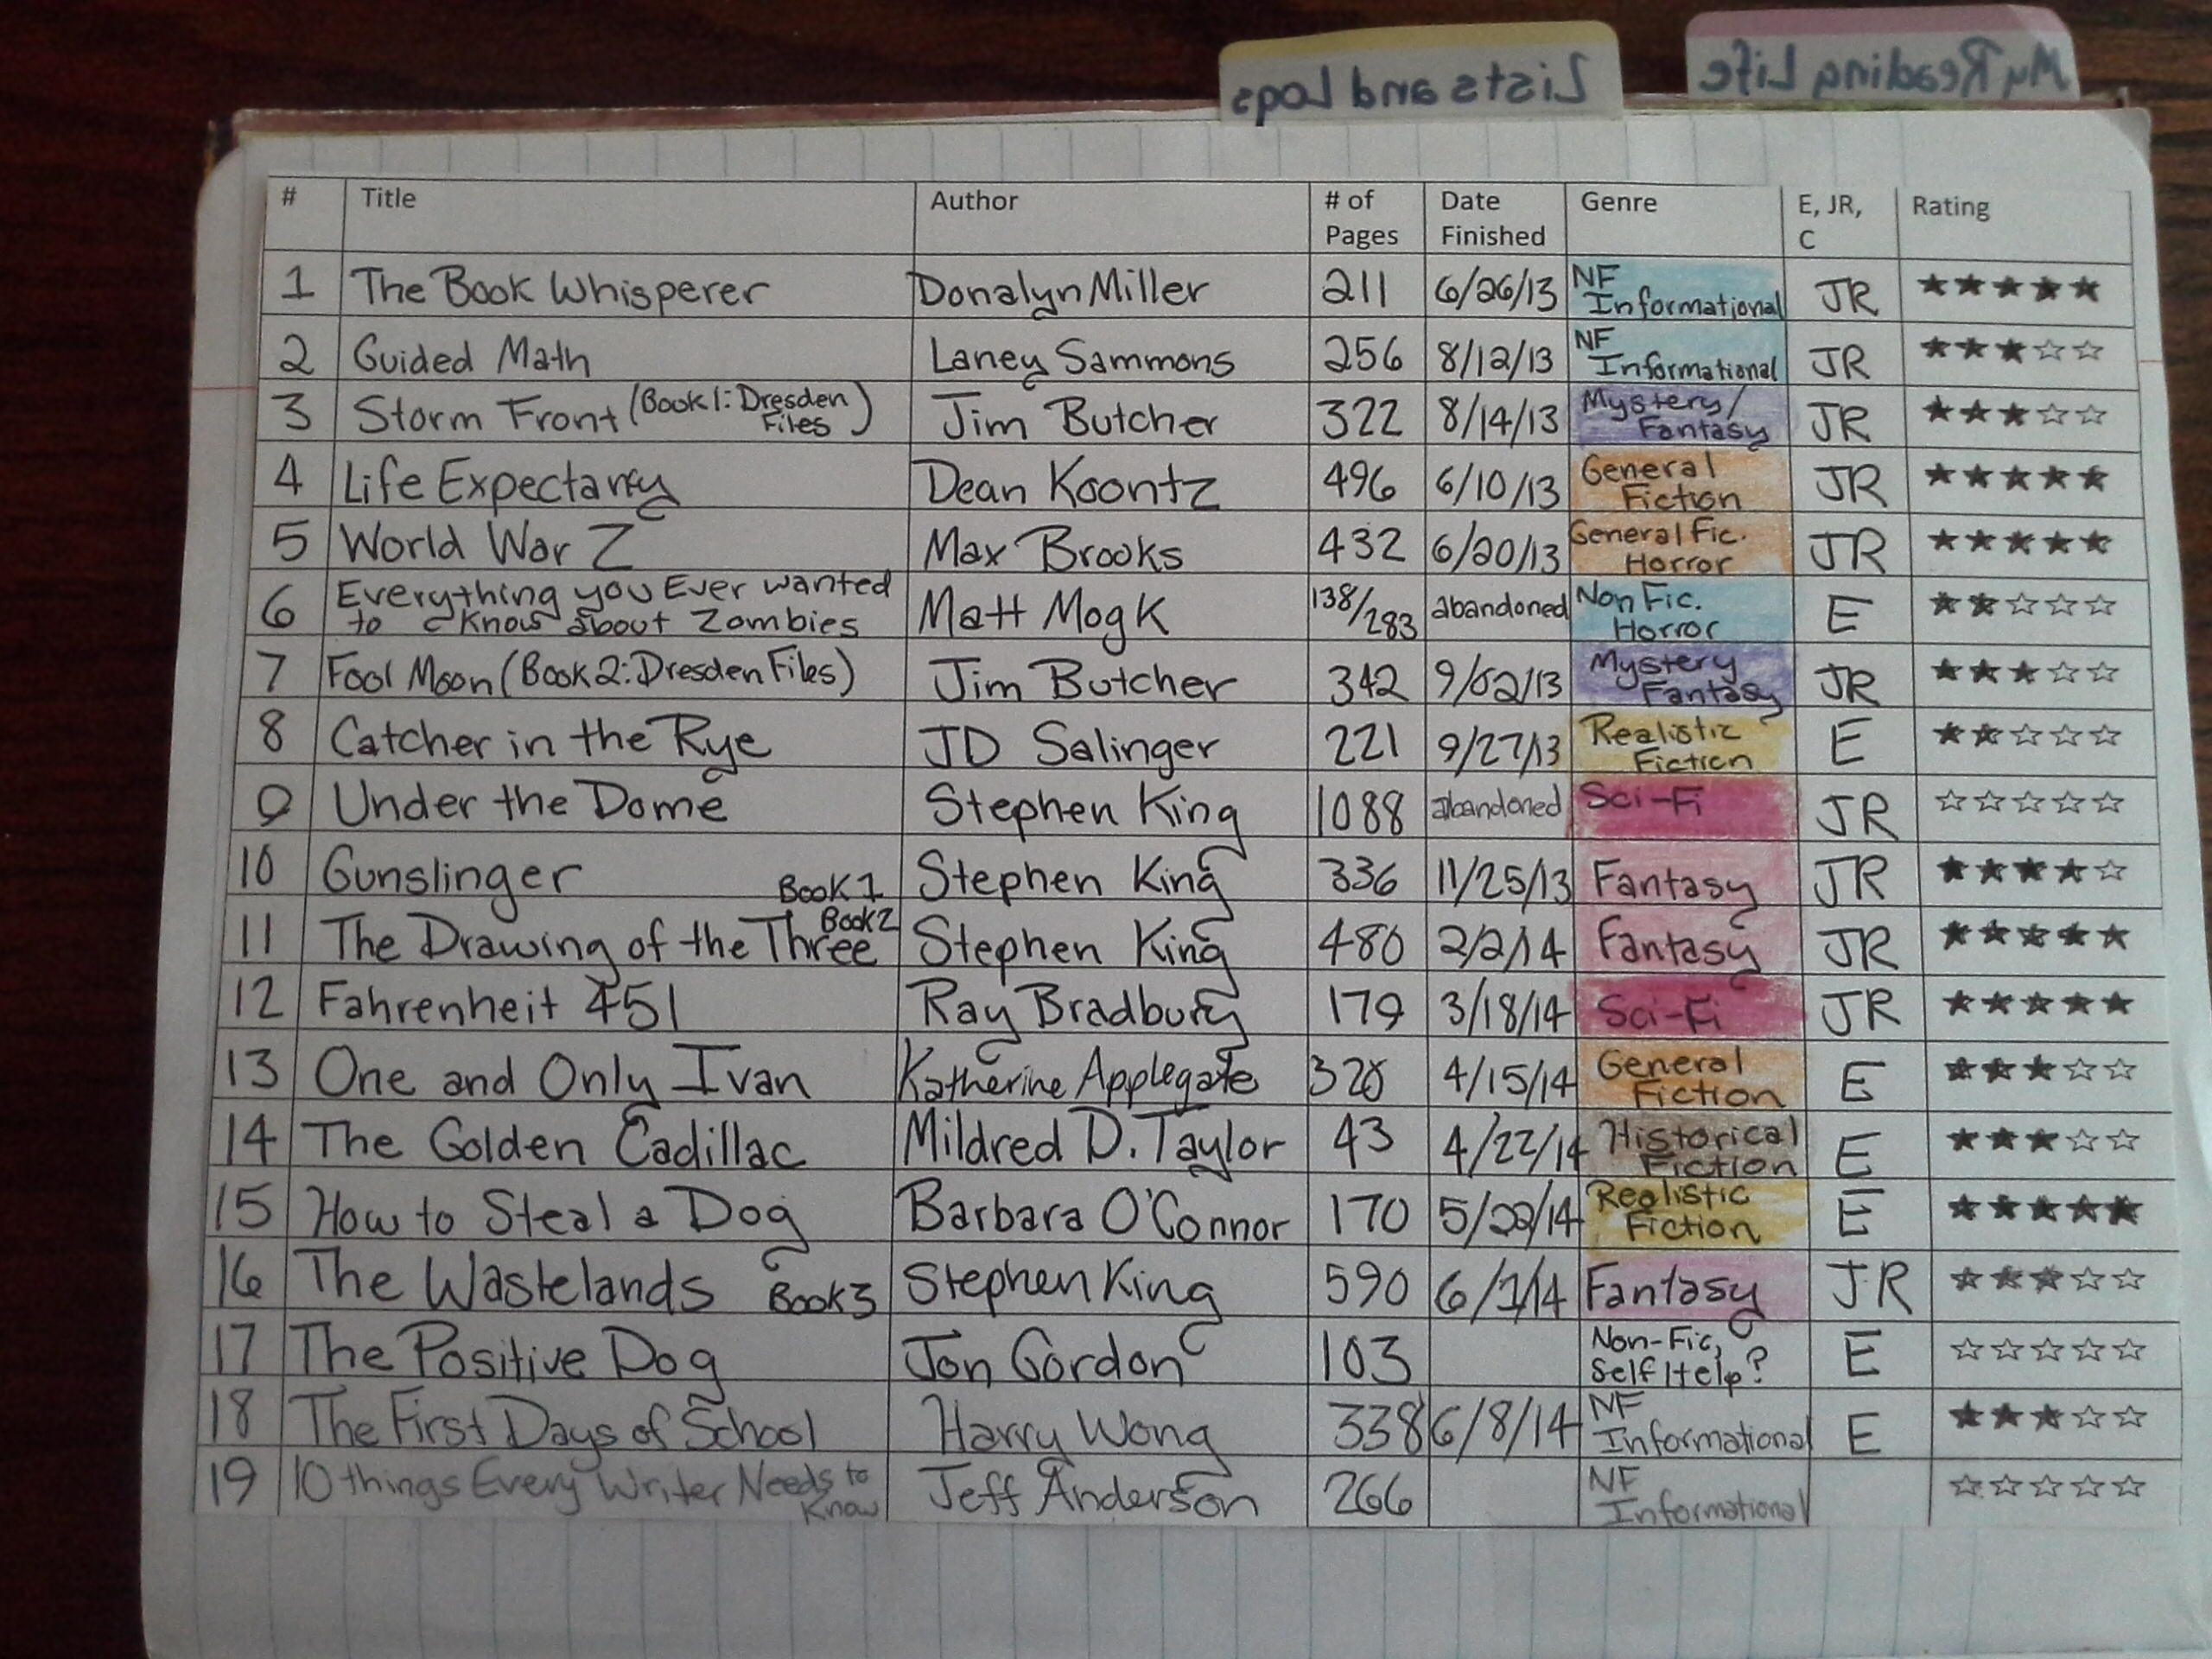 My Reading Life
Lists and Logs
# Title Author # of Pages Date Finished Genre E, JR, C Rating
1 The Book Whisperer Donalyn Miller 211 6/26/13 NF Informational JR ★★★★★
2 Guided Math Laney Sammons 256 8/12/13 NF Informational JR ★★★☆☆
3 Storm Front (Book 1: Dresden Files) Jim Butcher 322 8/14/13 Mystery/ Fantasy JR ★★★☆☆
4 Life Expectancy Dean Koontz 496 6/10/13 General Fiction JR ★★★★★
5 World War Z Max Brooks 432 6/20/13 General Fic. Horror JR ★★★★★
6 Everything you Ever wanted to Know about Zombies Matt Mogk 138/283 abandoned Non Fic. Horror E ★★☆☆☆
7 Fool Moon (Book 2: Dresden Files) Jim Butcher 342 9/02/13 Mystery Fantasy JR ★★★☆☆
8 Catcher in the Rye JD Salinger 221 9/27/13 Realistic Fiction E ★★☆☆☆
9 Under the Dome Stephen King 1088 abandoned Sci-Fi JR ☆☆☆☆☆
10 Gunslinger Book 1 Stephen King 336 11/25/13 Fantasy JR ★★★★☆
11 The Drawing of the Three Book 2 Stephen King 480 2/2/14 Fantasy JR ★★★★★
12 Fahrenheit 451 Ray Bradbury 179 3/18/14 Sci-Fi JR ★★★★★
13 One and Only Ivan Katherine Applegate 4/15/14 General Fiction E ★★★☆☆
14 The Golden Cadillac Mildred D. Taylor 43 4/22/14 Historical Fiction E ★★★☆☆
15 How to Steal a Dog Barbara O'Connor 170 5/22/14 Realistic Fiction E ★★★★★
16 The Wastelands Book 3 Stephen King 590 6/1/14 Fantasy JR ★★★☆☆
17 The Positive Dog Jon Gordon 103 Non-Fic, Self Help? E ☆☆☆☆☆
18 The First Days of School Harry Wong 338 6/8/14 NF Informational E ★★★☆☆
19 10 things Every Writer Needs to Know Jeff Anderson 266 NF Informational ☆☆☆☆☆